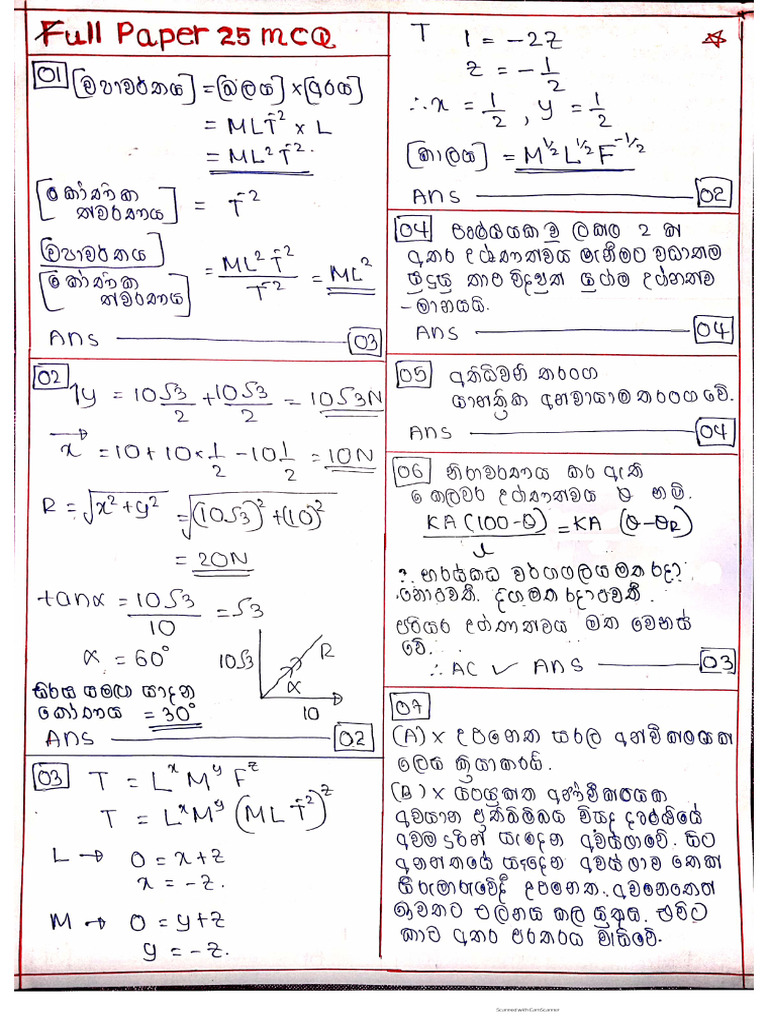 Full Paper 25 MCQ
01 [ව්‍යාවර්තය] = [බලය] × [දුර]
= MLT⁻² × L
= ML²T⁻²
[කෝණික ත්වරණය] = T⁻²
[ව්‍යාවර්තය] / [කෝණික ත්වරණය] = ML²T⁻² / T⁻² = ML²
Ans 03
02
↑y = 10√3/2 + 10√3/2 = 10√3N
x = 10 + 10×1/2 − 10 1/2 = 10N
R = √x²+y² = √(10√3)²+(10)²
= 20N
tanα = 10√3/10 = √3
α = 60°
10√3 R α 10
සිරස සමඟ සාදන
කෝණය = 30°
Ans 02
03 T = LˣMʸFᶻ
T = LˣMʸ(MLT⁻²)ᶻ
L → 0 = x+z
x = −z.
M → 0 = y+z
y = −z.
T 1 = −2z
z = −1/2
∴ x = 1/2, y = 1/2
[කාලය] = M^1/2 L^1/2 F^−1/2
Ans 02
04 ලක්ෂ්‍ය 2 ක්
අතර උෂ්ණත්වය මැනීමට වඩාත්ම
සුදුසු තාප විද්‍යුත් යුග්ම උෂ්ණත්ව
-මානයයි.
Ans 04
05 අතිධ්වනි තරංග
යාන්ත්‍රික අන්වායාම තරංග වේ.
Ans 04
06 කර ඇති
කෙලවර උෂ්ණත්වය θ නම්.
KA(100−θ)/l = KA(θ−θR)
? හරස්කඩ වර්ගඵලය මත රඳා?
නොපවතී. දිග මත රඳා පවතී.
පරිසර උෂ්ණත්වය මත වෙනස්
වේ.
∴ AC ✓ Ans 03
07
(A) × උපනෙත සරල අන්වීක්ෂයක්
ලෙස ක්‍රියාකරයි.
(B) × සංයුක්ත අන්වීක්ෂයක
අවසාන ප්‍රතිබිම්බය විශද දෘෂ්ටියේ
අවම දුරින් සෑදෙන අවස්ථාවේ සිට
අනන්තයේ සෑදෙන අවස්ථාව තෙක්
සීරුමාරුවේදී උපනෙත, අවනෙතෙන්
ඉවතට චලනය කල යුතුය. එවිට
කාච අතර පරතරය වැඩිවේ.
Scanned with CamScanner